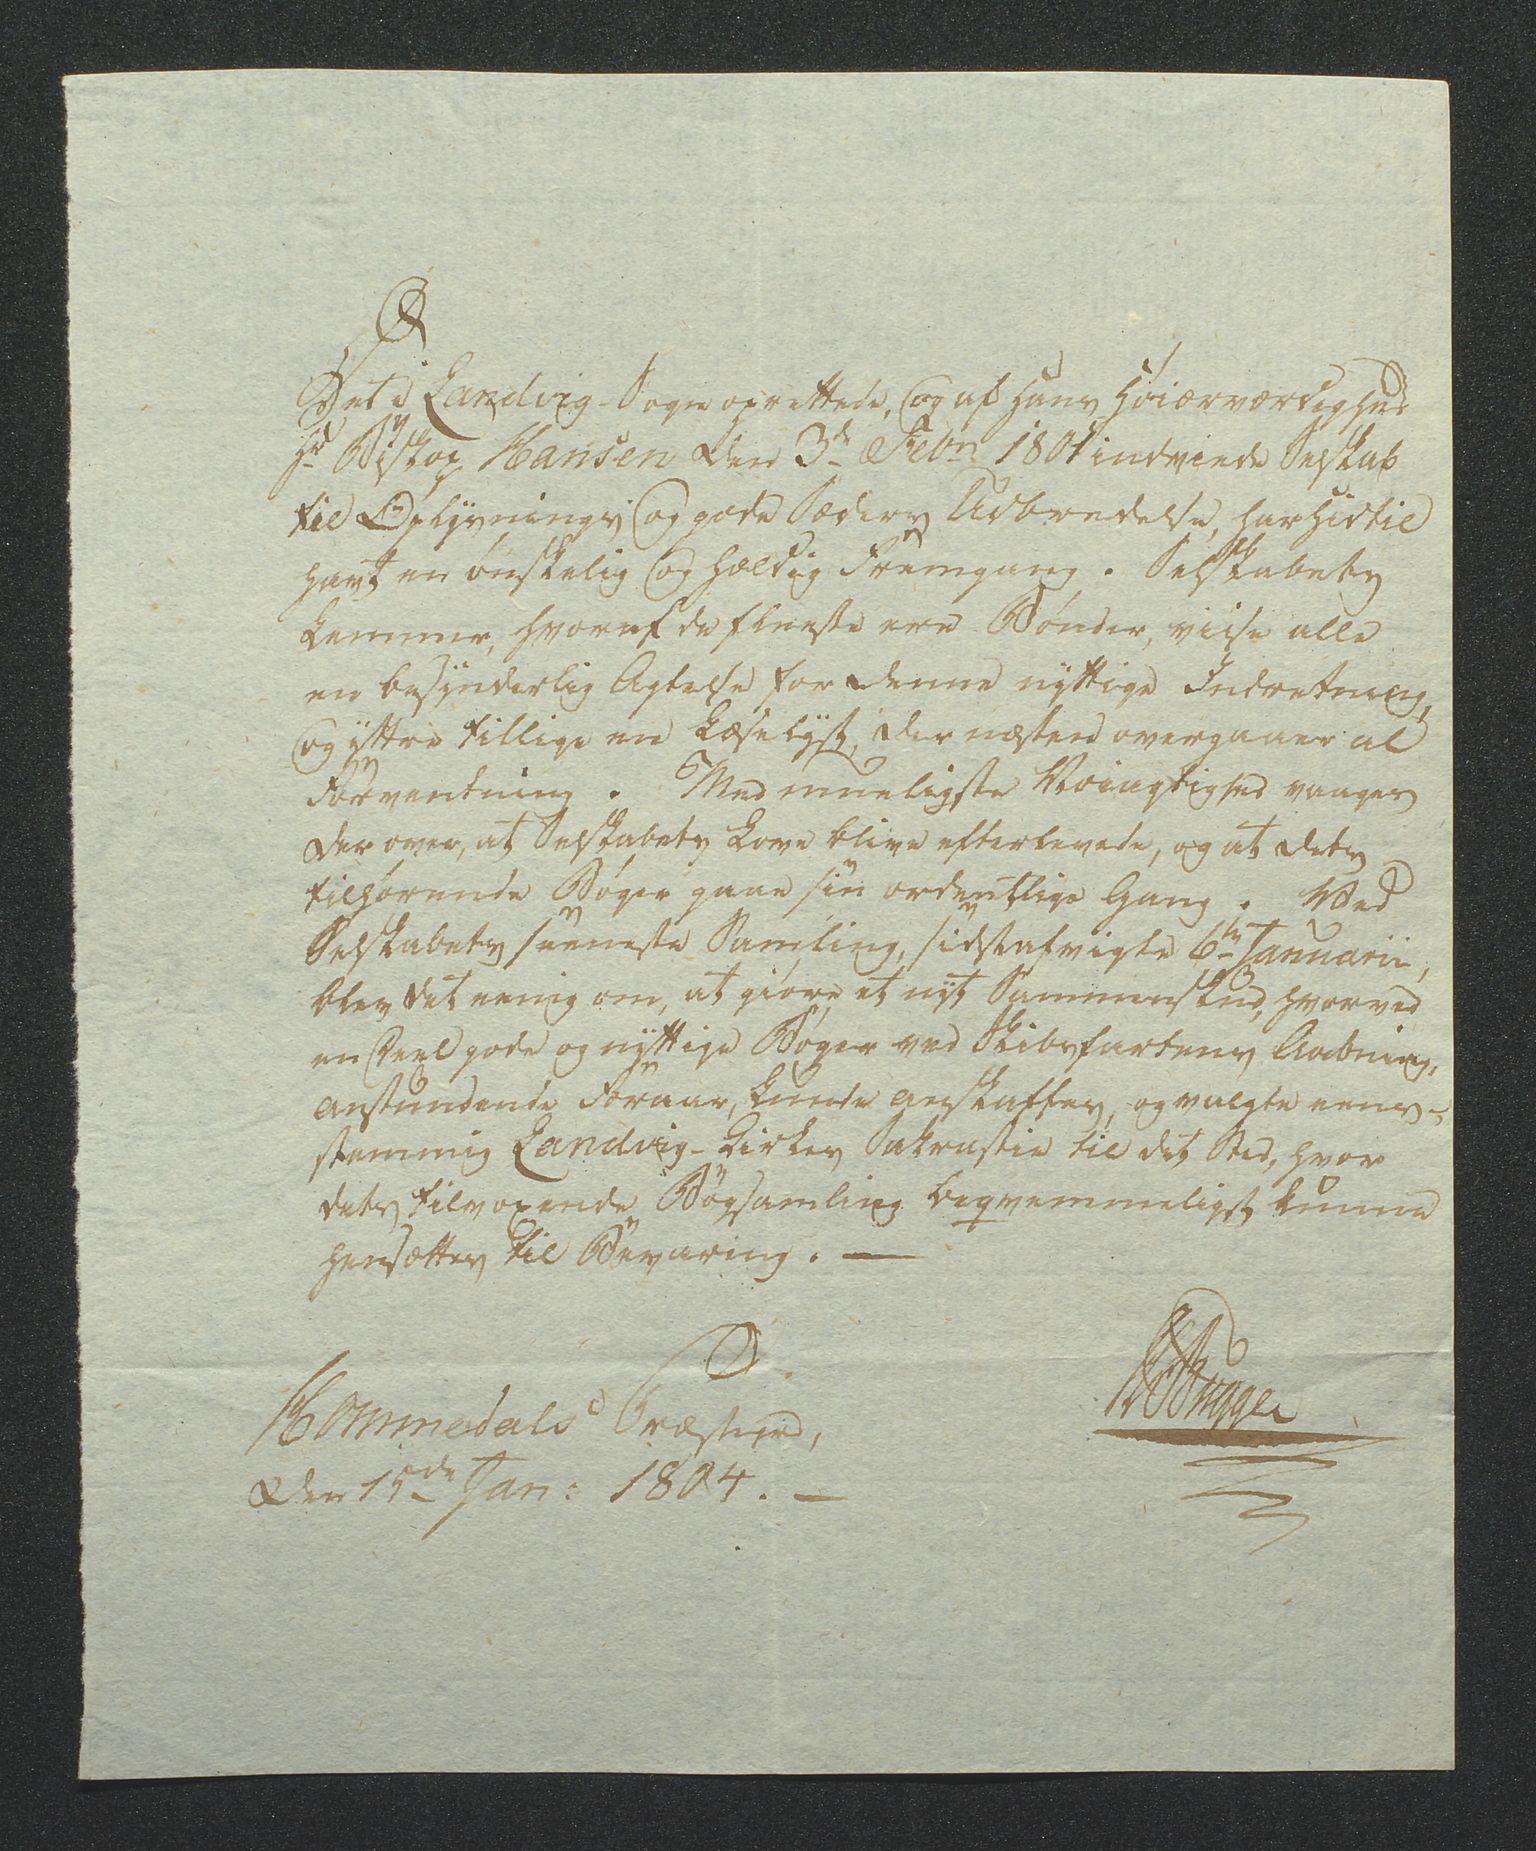 Det i Landvig-Sogn oprettede, og af Hans Höiærværdighed
Hr Biskop Hansen den 3de Febr. 1801 indviede Selskab
til Oplysnings og gode Sæders Udbredelse, har hidtil
havt en ønskelig og heldig Fremgang. Selskabets
Lemmer, hvoraf de fleeste ere Bønder, viise alle
en besynderlig Agtelse for denne nyttige Indretning,
og yttre tillige en Læselyst, der næsten overgaaer al
Forventning. Med mueligste Nøiagtighed vaages
der over, at Selskabets Love blive efterlevede, og at dets
tilhørende Bøger gaae sin ordentlige Gang. Ved
Selskabets seeneste Samling, sidstafvigte 6te Januarii,
blev det eenig om, at giøre et nyt Sammenskud, hvorved
en Deel gode og nyttige Bøger ved Skibsfartens Aabning,
anstundende Foraar, kunde anskaffes, og valgte eens-
stemmig Landvig-Kirkes Sakrastie til det Sted, hvor
dets tilvoxende Bogsamling beqvemmeligst kunne
hensættes til Bevaring. —
Hommedals Præstegrd,
den 15de Jan: 1804. —
Bugge